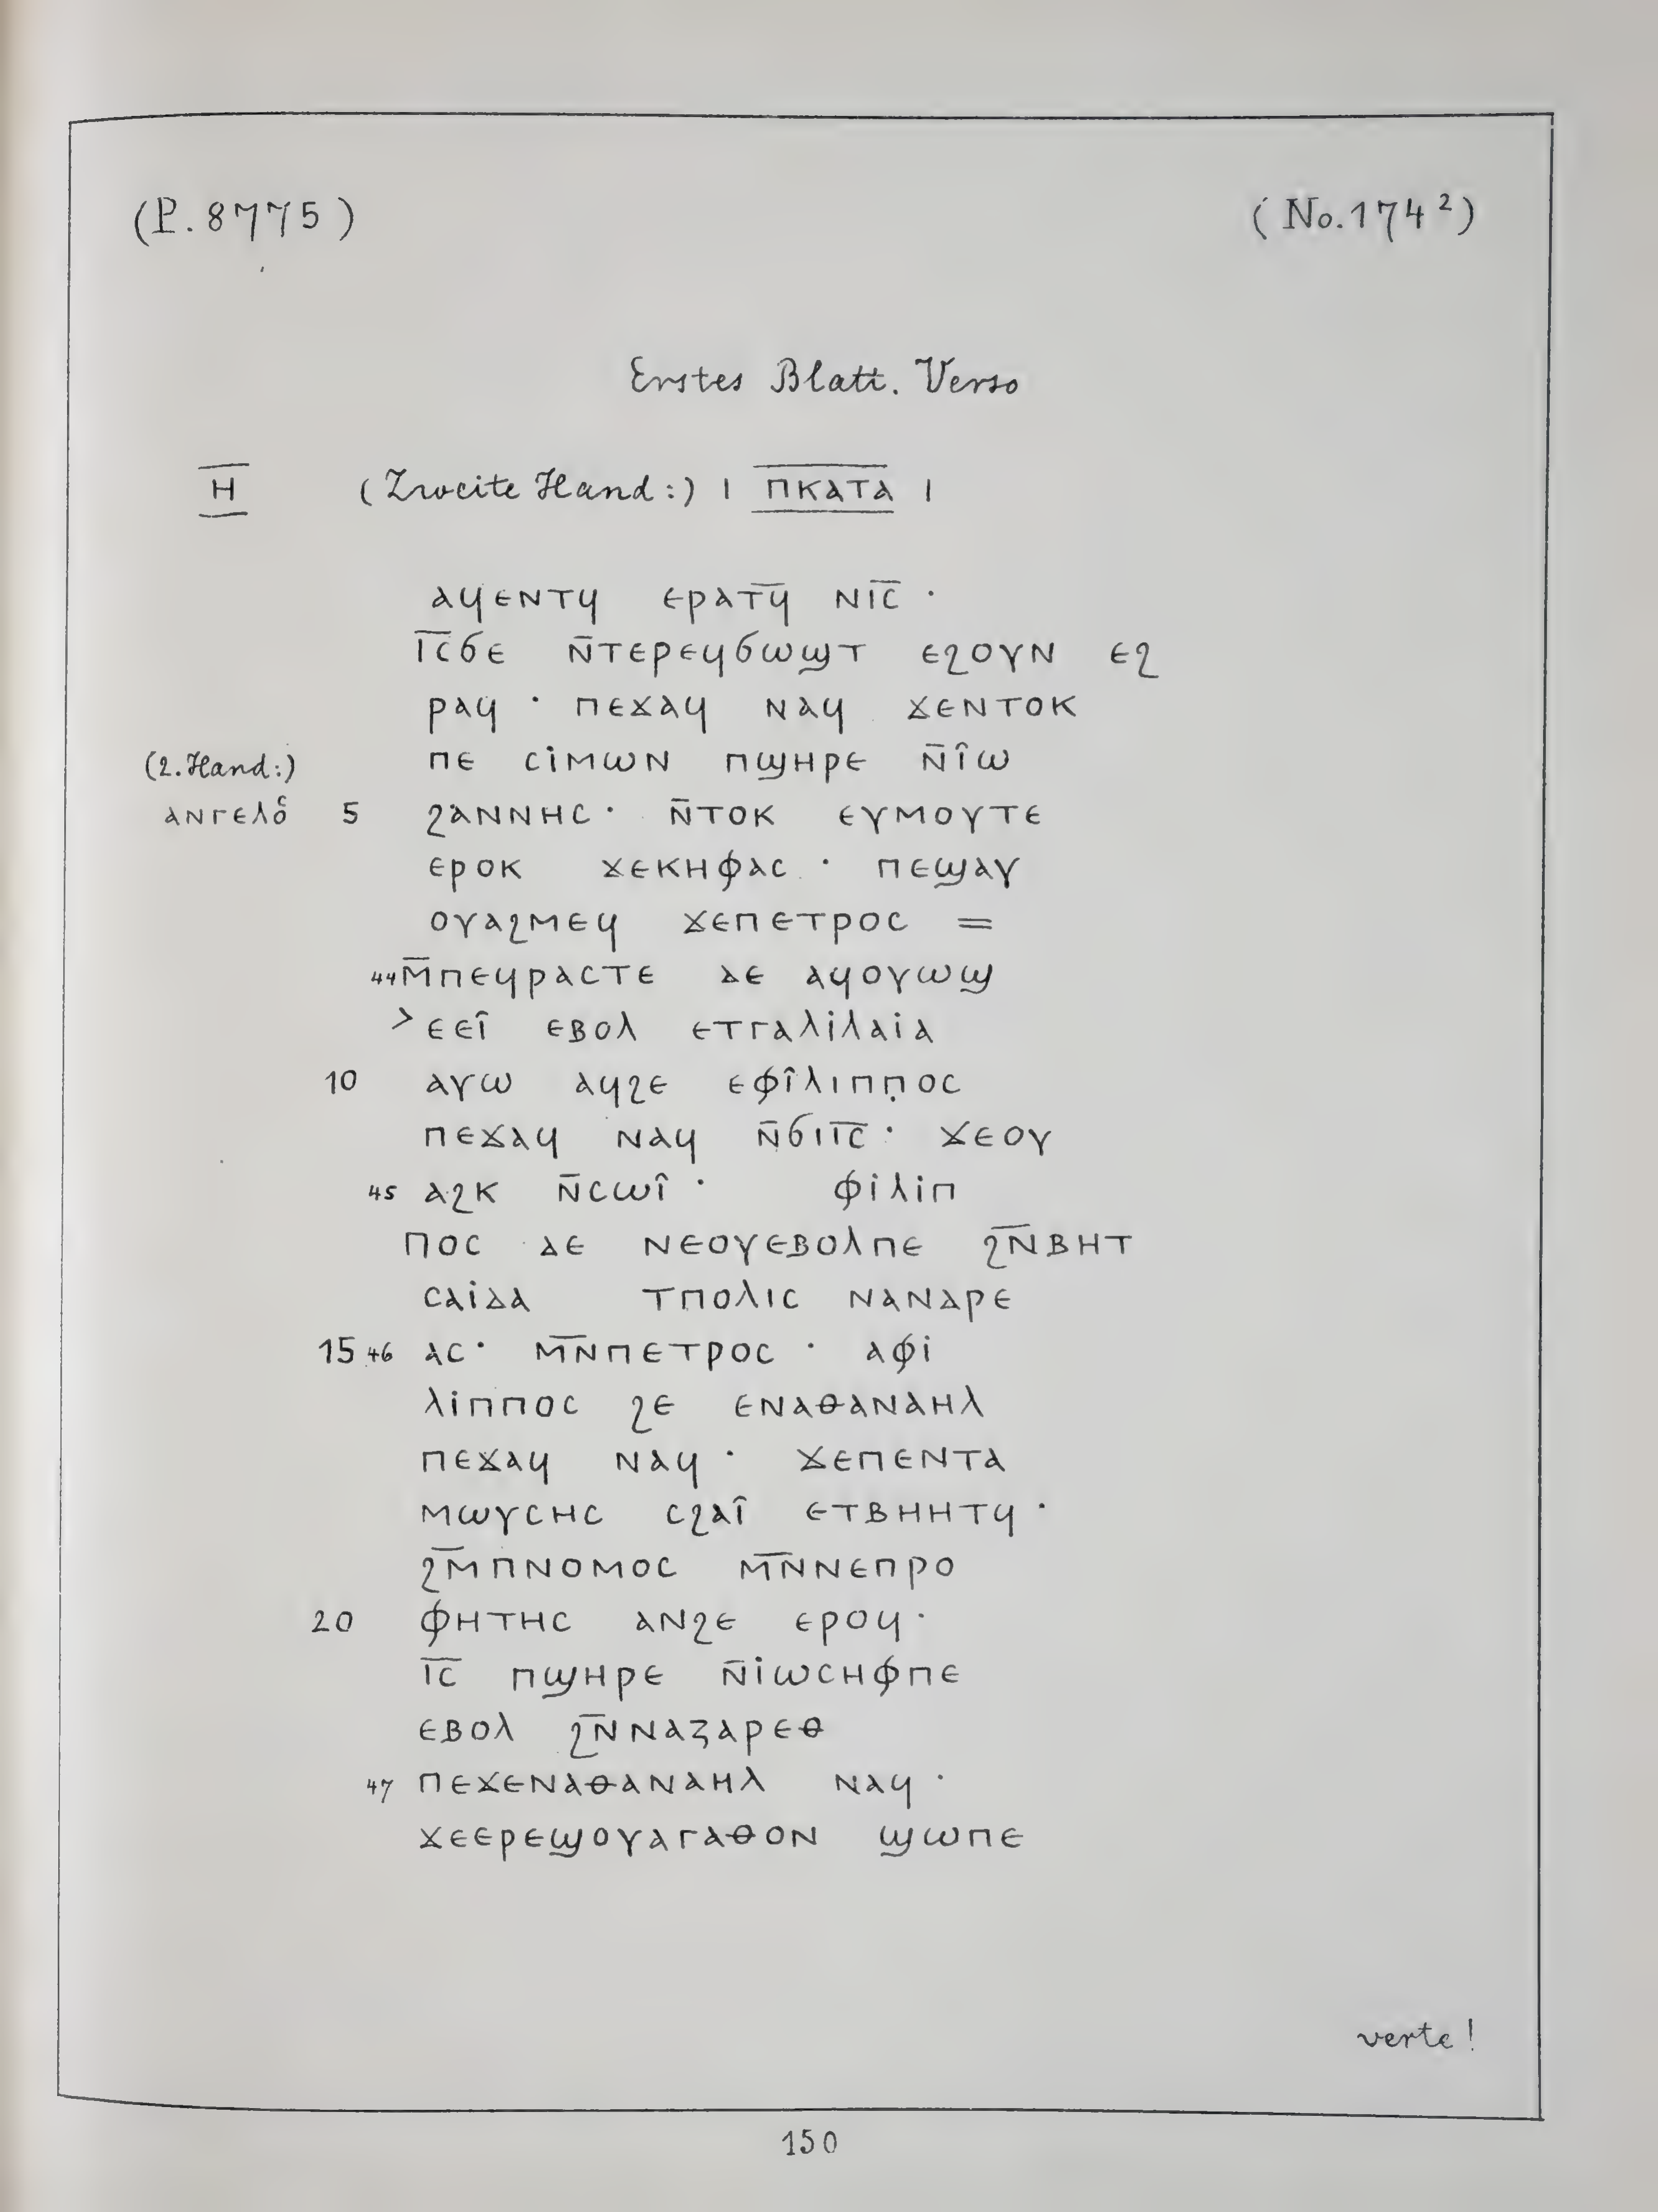 (P. 8775) (No. 174²)
Erstes Blatt. Verso
ⲏ̅ (Zweite Hand:) | ⲡⲕⲁⲧⲁ |
ⲁϥⲉⲛⲧϥ ⲉⲣⲁⲧϥ̅ ⲛⲓ̅ⲥ̅ ·
ⲓ̅ⲥ̅ϭⲉ ⲛ̅ⲧⲉⲣⲉϥϭⲱϣⲧ ⲉϩⲟⲩⲛ ⲉϩ
ⲣⲁϥ · ⲡⲉϫⲁϥ ⲛⲁϥ ϫⲉⲛⲧⲟⲕ
(2. Hand:) ⲡⲉ ⲥⲓ̇ⲙⲱⲛ ⲡϣⲏⲣⲉ ⲛ̅ⲓ̂ⲱ
ⲁⲛⲅⲉⲗⲟⲥ 5 ϩⲁⲛⲛⲏⲥ · ⲛ̅ⲧⲟⲕ ⲉⲩⲙⲟⲩⲧⲉ
ⲉⲣⲟⲕ ϫⲉⲕⲏⲫⲁⲥ · ⲡⲉϣⲁⲩ
ⲟⲩⲁϩⲙⲉϥ ϫⲉⲡⲉⲧⲣⲟⲥ =
44 ⲙ̅ⲡⲉϥⲣⲁⲥⲧⲉ ⲇⲉ ⲁϥⲟⲩⲱϣ
> ⲉⲉⲓ̂ ⲉⲃⲟⲗ ⲉⲧⲅⲁⲗⲓ̇ⲗⲁⲓ̇ⲁ
10 ⲁⲩⲱ ⲁϥϩⲉ ⲉⲫⲓ̂ⲗⲓⲡⲡ̣ⲟⲥ
ⲡⲉϫⲁϥ ⲛⲁϥ ⲛ̅ϭⲓⲓ̅ⲥ̅ · ϫⲉⲟⲩ
45 ⲁϩⲕ ⲛ̅ⲥⲱⲓ̂ · ⲫⲓ̇ⲗⲓ̇ⲡ
ⲡⲟⲥ ⲇⲉ ⲛⲉⲟⲩⲉⲃⲟⲗⲡⲉ ϩⲛ̅ⲃⲏⲧ
ⲥⲁⲓ̇ⲇⲁ ⲧⲡⲟⲗⲓⲥ ⲛⲁⲛⲇⲣⲉ
15 46 ⲁⲥ · ⲙⲛ̅ⲡⲉⲧⲣⲟⲥ · ⲁⲫⲓ̇
ⲗⲓ̇ⲡⲡⲟⲥ ϩⲉ ⲉⲛⲁⲑⲁⲛⲁⲏⲗ
ⲡⲉϫⲁϥ ⲛⲁϥ · ϫⲉⲡⲉⲛⲧⲁ
ⲙⲱⲩⲥⲏⲥ ⲥϩⲁⲓ̂ ⲉⲧⲃⲏⲏⲧϥ ·
ϩⲙ̅ⲡⲛⲟⲙⲟⲥ ⲙⲛ̅ⲛⲉⲡⲣⲟ
20 ⲫⲏⲧⲏⲥ ⲁⲛϩⲉ ⲉⲣⲟϥ ·
ⲓ̅ⲥ̅ ⲡϣⲏⲣⲉ ⲛ̅ⲓ̇ⲱⲥⲏⲫⲡⲉ
ⲉⲃⲟⲗ ϩⲛ̅ⲛⲁⲍⲁⲣⲉⲑ
47 ⲡⲉϫⲉⲛⲁⲑⲁⲛⲁⲏⲗ ⲛⲁϥ ·
ϫⲉⲉⲣⲉϣⲟⲩⲁⲅⲁⲑⲟⲛ ϣⲱⲡⲉ
verte!
150